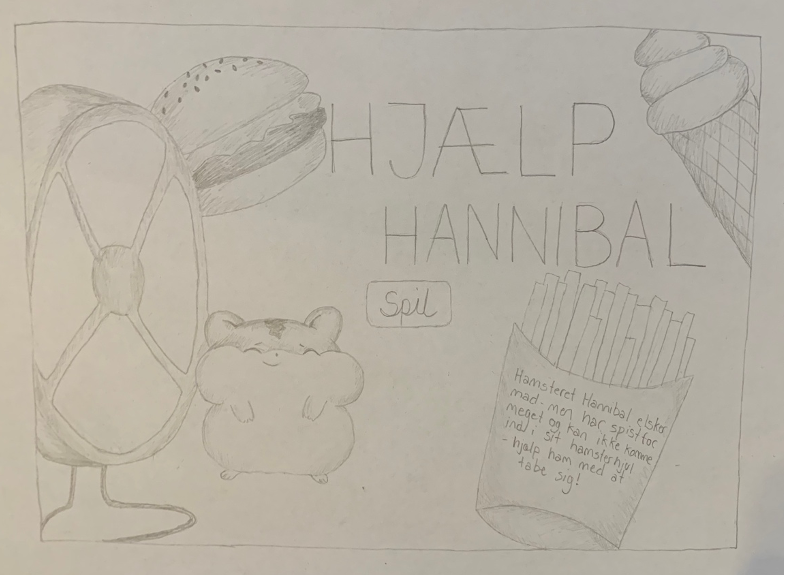 HJÆLP
HANNIBAL
Spil
Hamsteret Hannibal elsker
mad. men har spist for
meget og kan ikke komme
ind i sit hamsterhjul
- hjælp ham med at
tabe sig!